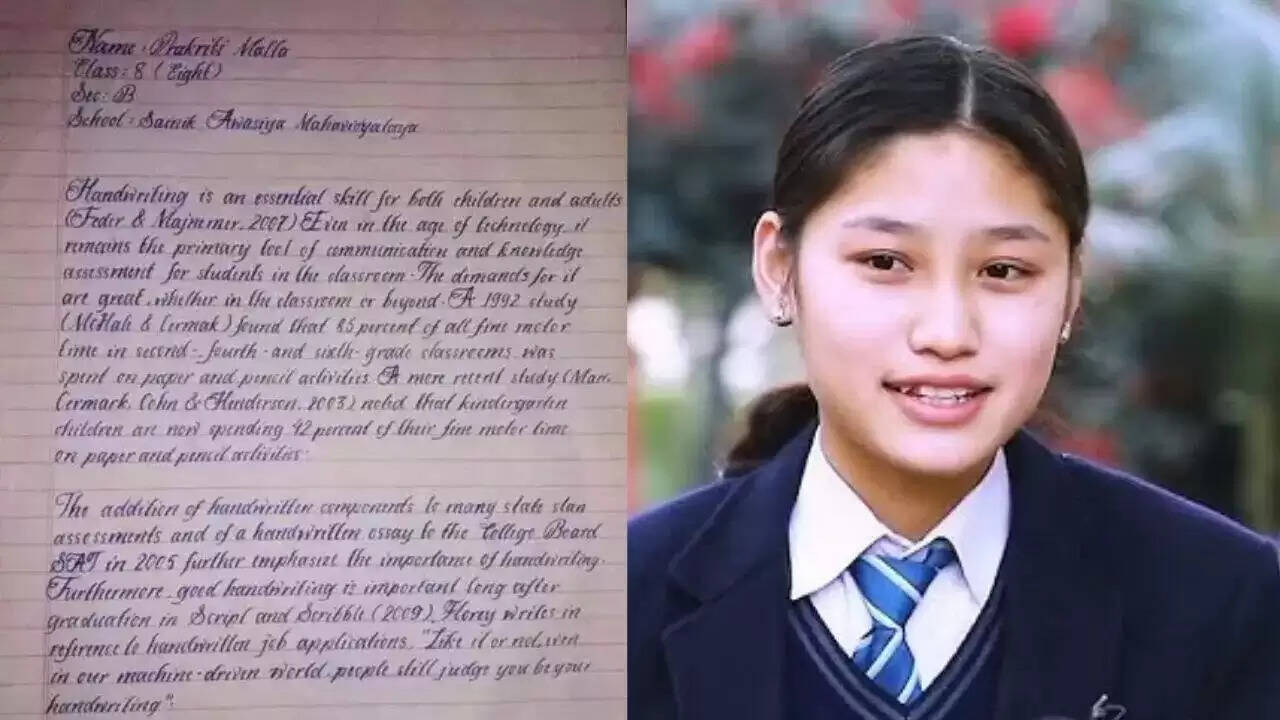 Name : Prakriti Malla
Class : 8 (Eight)
Sec : B
School : Sainik Awasiya Mahavidyalaya
Handwriting is an essential skill for both children and adults
(Feder & Majnemer, 2007) Even in the age of technology, it
remains the primary tool of communication and knowledge
assessment for students in the classroom. The demands for it
are great, whether in the classroom or beyond. A 1992 study
(McHale & Cermak) found that 85 percent of all fine motor
time in second-, fourth-and sixth-grade classrooms was
spent on paper and pencil activities. A more recent study (Marr,
Cermark, Cohn & Henderson, 2003) noted that kindergarten
children are now spending 42 percent of their fine motor time
on paper and pencil activities.
The addition of handwritten components to many state stan
assessments and of a handwritten essay to the College Board
SAT in 2005 further emphasize the importance of handwriting.
Furthermore, good handwriting is important long after
graduation in Script and Scribble (2009), Florey writes in
reference to handwritten job applications, "Like it or not, even
in our machine-driven world, people still judge you be your
handwriting".